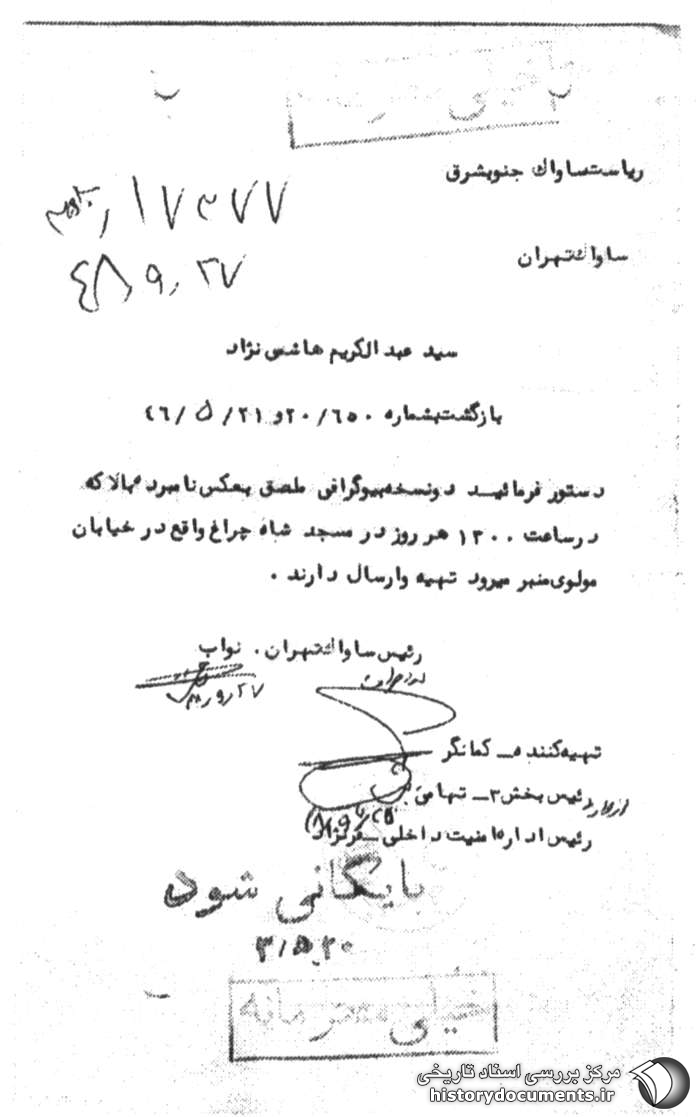 خیلی محرمانه
ریاست ساواک جنوبشرق
۱۷۳۷۷
۴۸٫۹٫۲۷
ساواک تهران
سید عبدالکریم هاشمی نژاد
بازگشت بشماره ۲۰/۶۵۰و ۴۶/۵/۲۱
دستور فرمائید دونسخه بیوگرافی ملصق بعکس نامبرده بالا که
درساعت ۱۳۰۰ هر روز در مسجد شاه چراغ واقع در خیابان
مولوی منبر میرود تهیه وارسال دارند .
رئیس ساواک تهران . نواب
تهیه کننده ـ کمانگر
رئیس بخش ۳ ـ تهامی
رئیس اداره امنیت داخلی ـ
بایگانی شود
۳/۵٫۲۰
خیلی محرمانه
مرکز بررسی اسناد تاریخی
historydocuments.ir